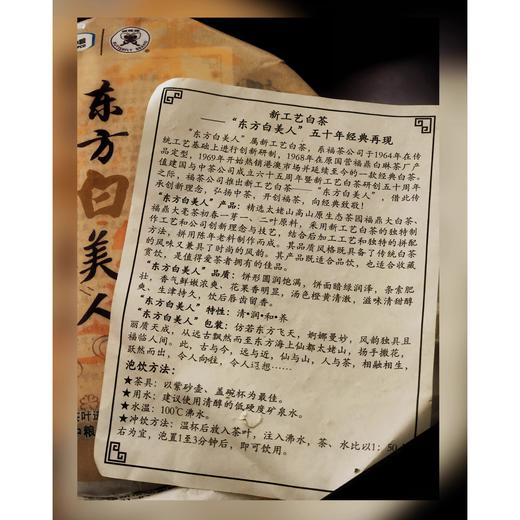 东方白美人
新工艺白茶
——“东方白美人”五十年经典再现
“东方白美人”属新工艺白茶，系福茶公司于1964年在传
统工艺基础上进行创新研制，1968年在原国营福鼎白琳茶厂产
品定型，1969年开始热销港澳市场并延续至今的一款经典白茶。
值建国与中茶公司成立六十五周年暨新工艺白茶研创五十周年
之际，福茶公司推出新工艺白茶——“东方白美人”，借此传
承创新理念，弘扬中茶，开创福茶，向经典致敬！
“东方白美人”产品：精选太姥山高山原生态茶园福鼎大白茶、
福鼎大毫茶初春一芽一、二叶原料，采用新工艺白茶的独特制
作工艺和公司创新理念与技艺，结合后加工工艺和独特的拼配
方法，拼用陈年老料制作而成。其品质风格既具备了传统白茶
的风味又兼具了时尚的风韵。其产品既适合品饮，也适合收藏
赏饮，是值得爱茶者拥有的佳品。
“东方白美人”品质：饼形圆润饱满，饼面醋绿润泽，条索肥
壮，香气鲜嫩浓爽、花果香明显，汤色橙黄清澈，滋味清甜醇
爽、生津持久，饮后唇齿留香。
“东方白美人”特性：清·润·和·养
“东方白美人”包装：仿若东方飞天，婀娜曼妙，风韵独具且
丽质天成，从远古飘然而至东方海上仙都太姥山，扬手撒花，
福临人间。此，古与今，远与近，仙与山，人与茶，相融相生，
跃然而出，令人向往，令人遐想……
泡饮方法：
★茶具：以紫砂壶、盖碗杯为最佳。
★用水：建议使用清醇的低硬度矿泉水。
★水温：100℃沸水。
★冲饮方法：温杯后放入茶叶，注入沸水，茶、水比以1：50
右为宜，浸泡1至3分钟后，即可饮用。